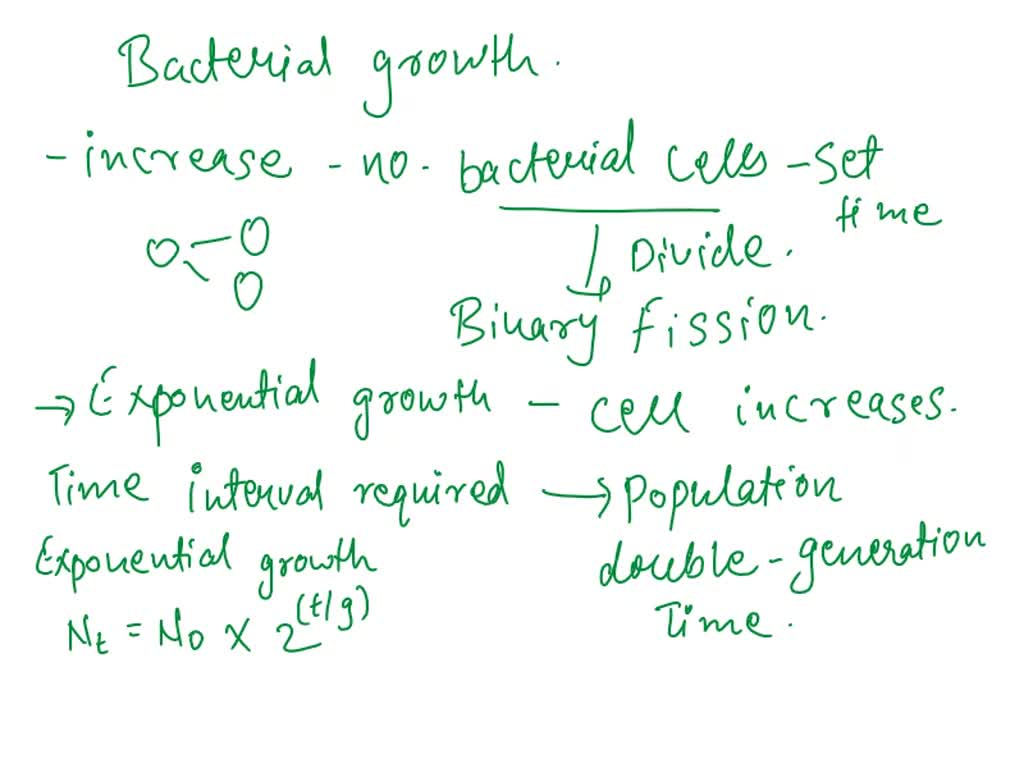 Bacterial growth.
- increase - no. bacterial cells - set time
Divide.
Binary fission.
→ Exponential growth - cell increases.
Time interval required → population double - generation Time.
Exponential growth
Nt = No X 2^(t/g)